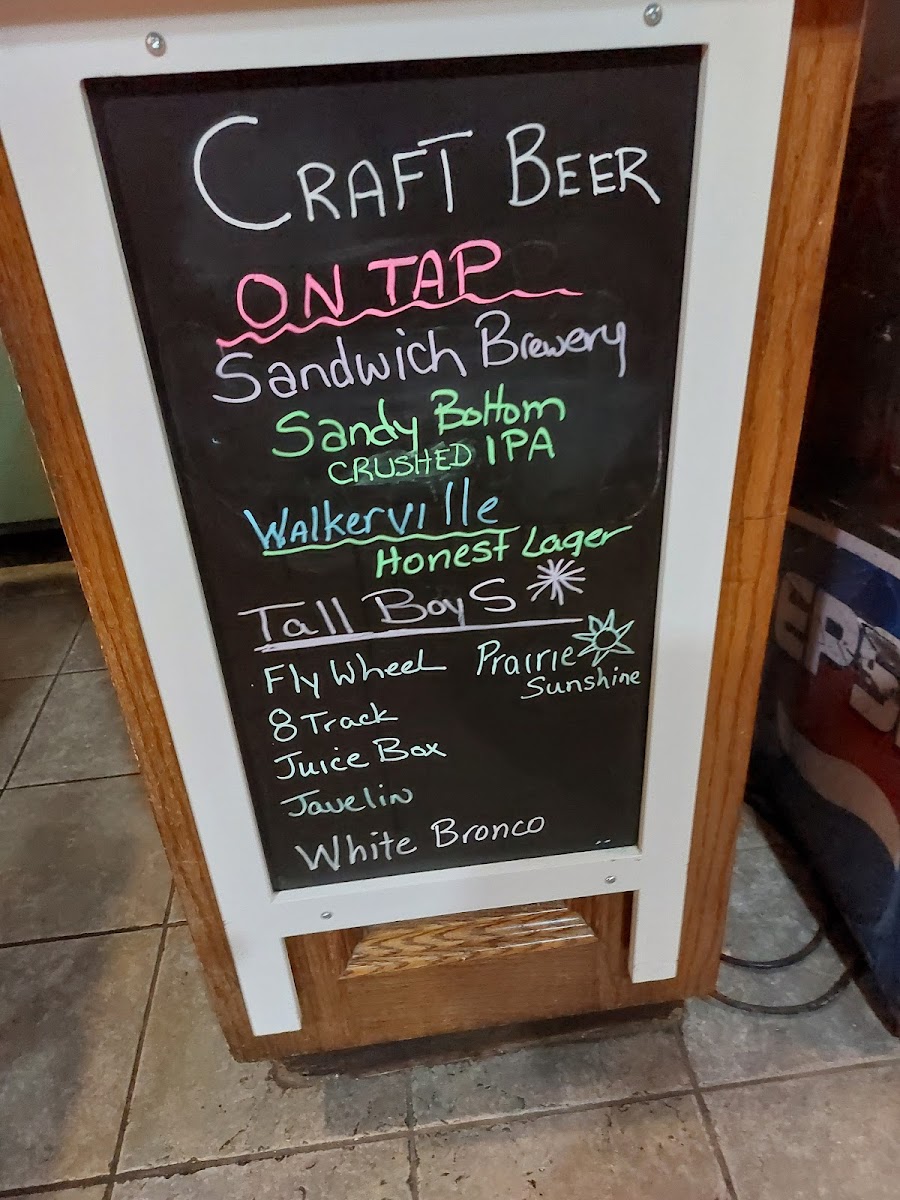 CRAFT BEER
ON TAP
Sandwich Brewery
Sandy Bottom
CRUSHED IPA
Walkerville
Honest Lager
Tall Boys
Fly Wheel
Prairie
Sunshine
8 Track
Juice Box
Javelin
White Bronco
PEPSI